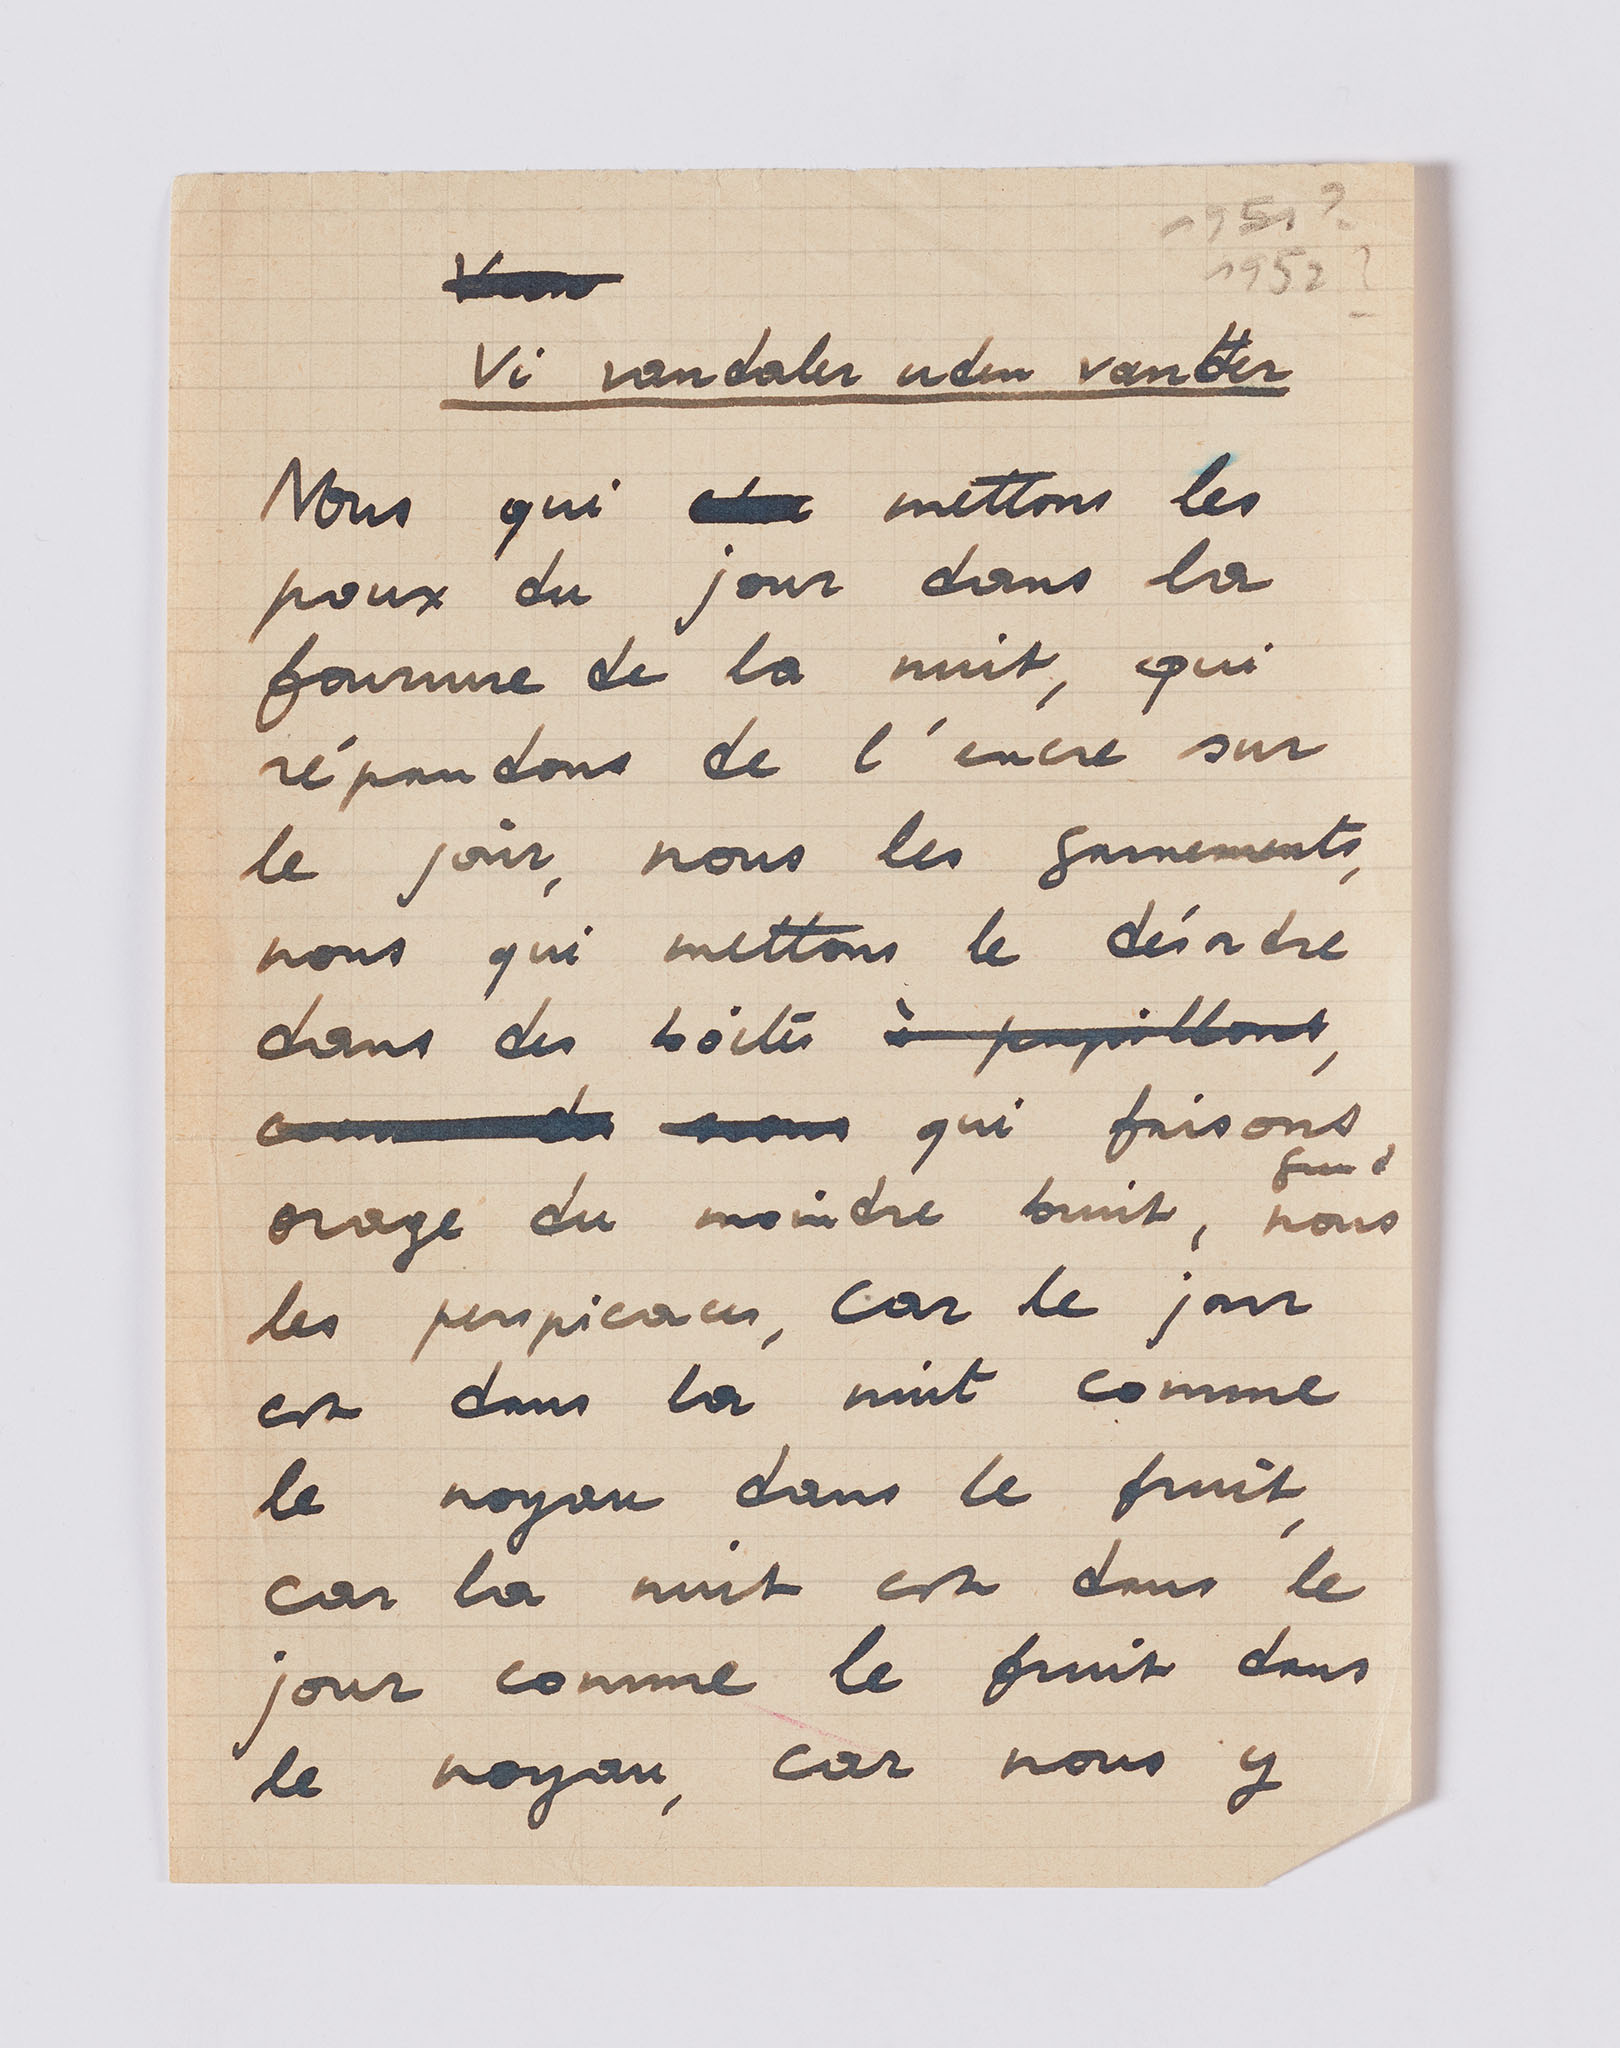 1951?
1952?
Vi vandaler uden vanter
Nous qui mettons les
poux du jour dans la
fourrure de la nuit, qui
répandons de l'encre sur
le jour, nous les garnements,
nous qui mettons le désordre
dans des boîtes à papillons,
des nous qui faisons
grand
orage du moindre bruit, nous
les perspicaces, car le jour
est dans la nuit comme
le noyau dans le fruit,
car la nuit est dans le
jour comme le fruit dans
le noyau, car nous y